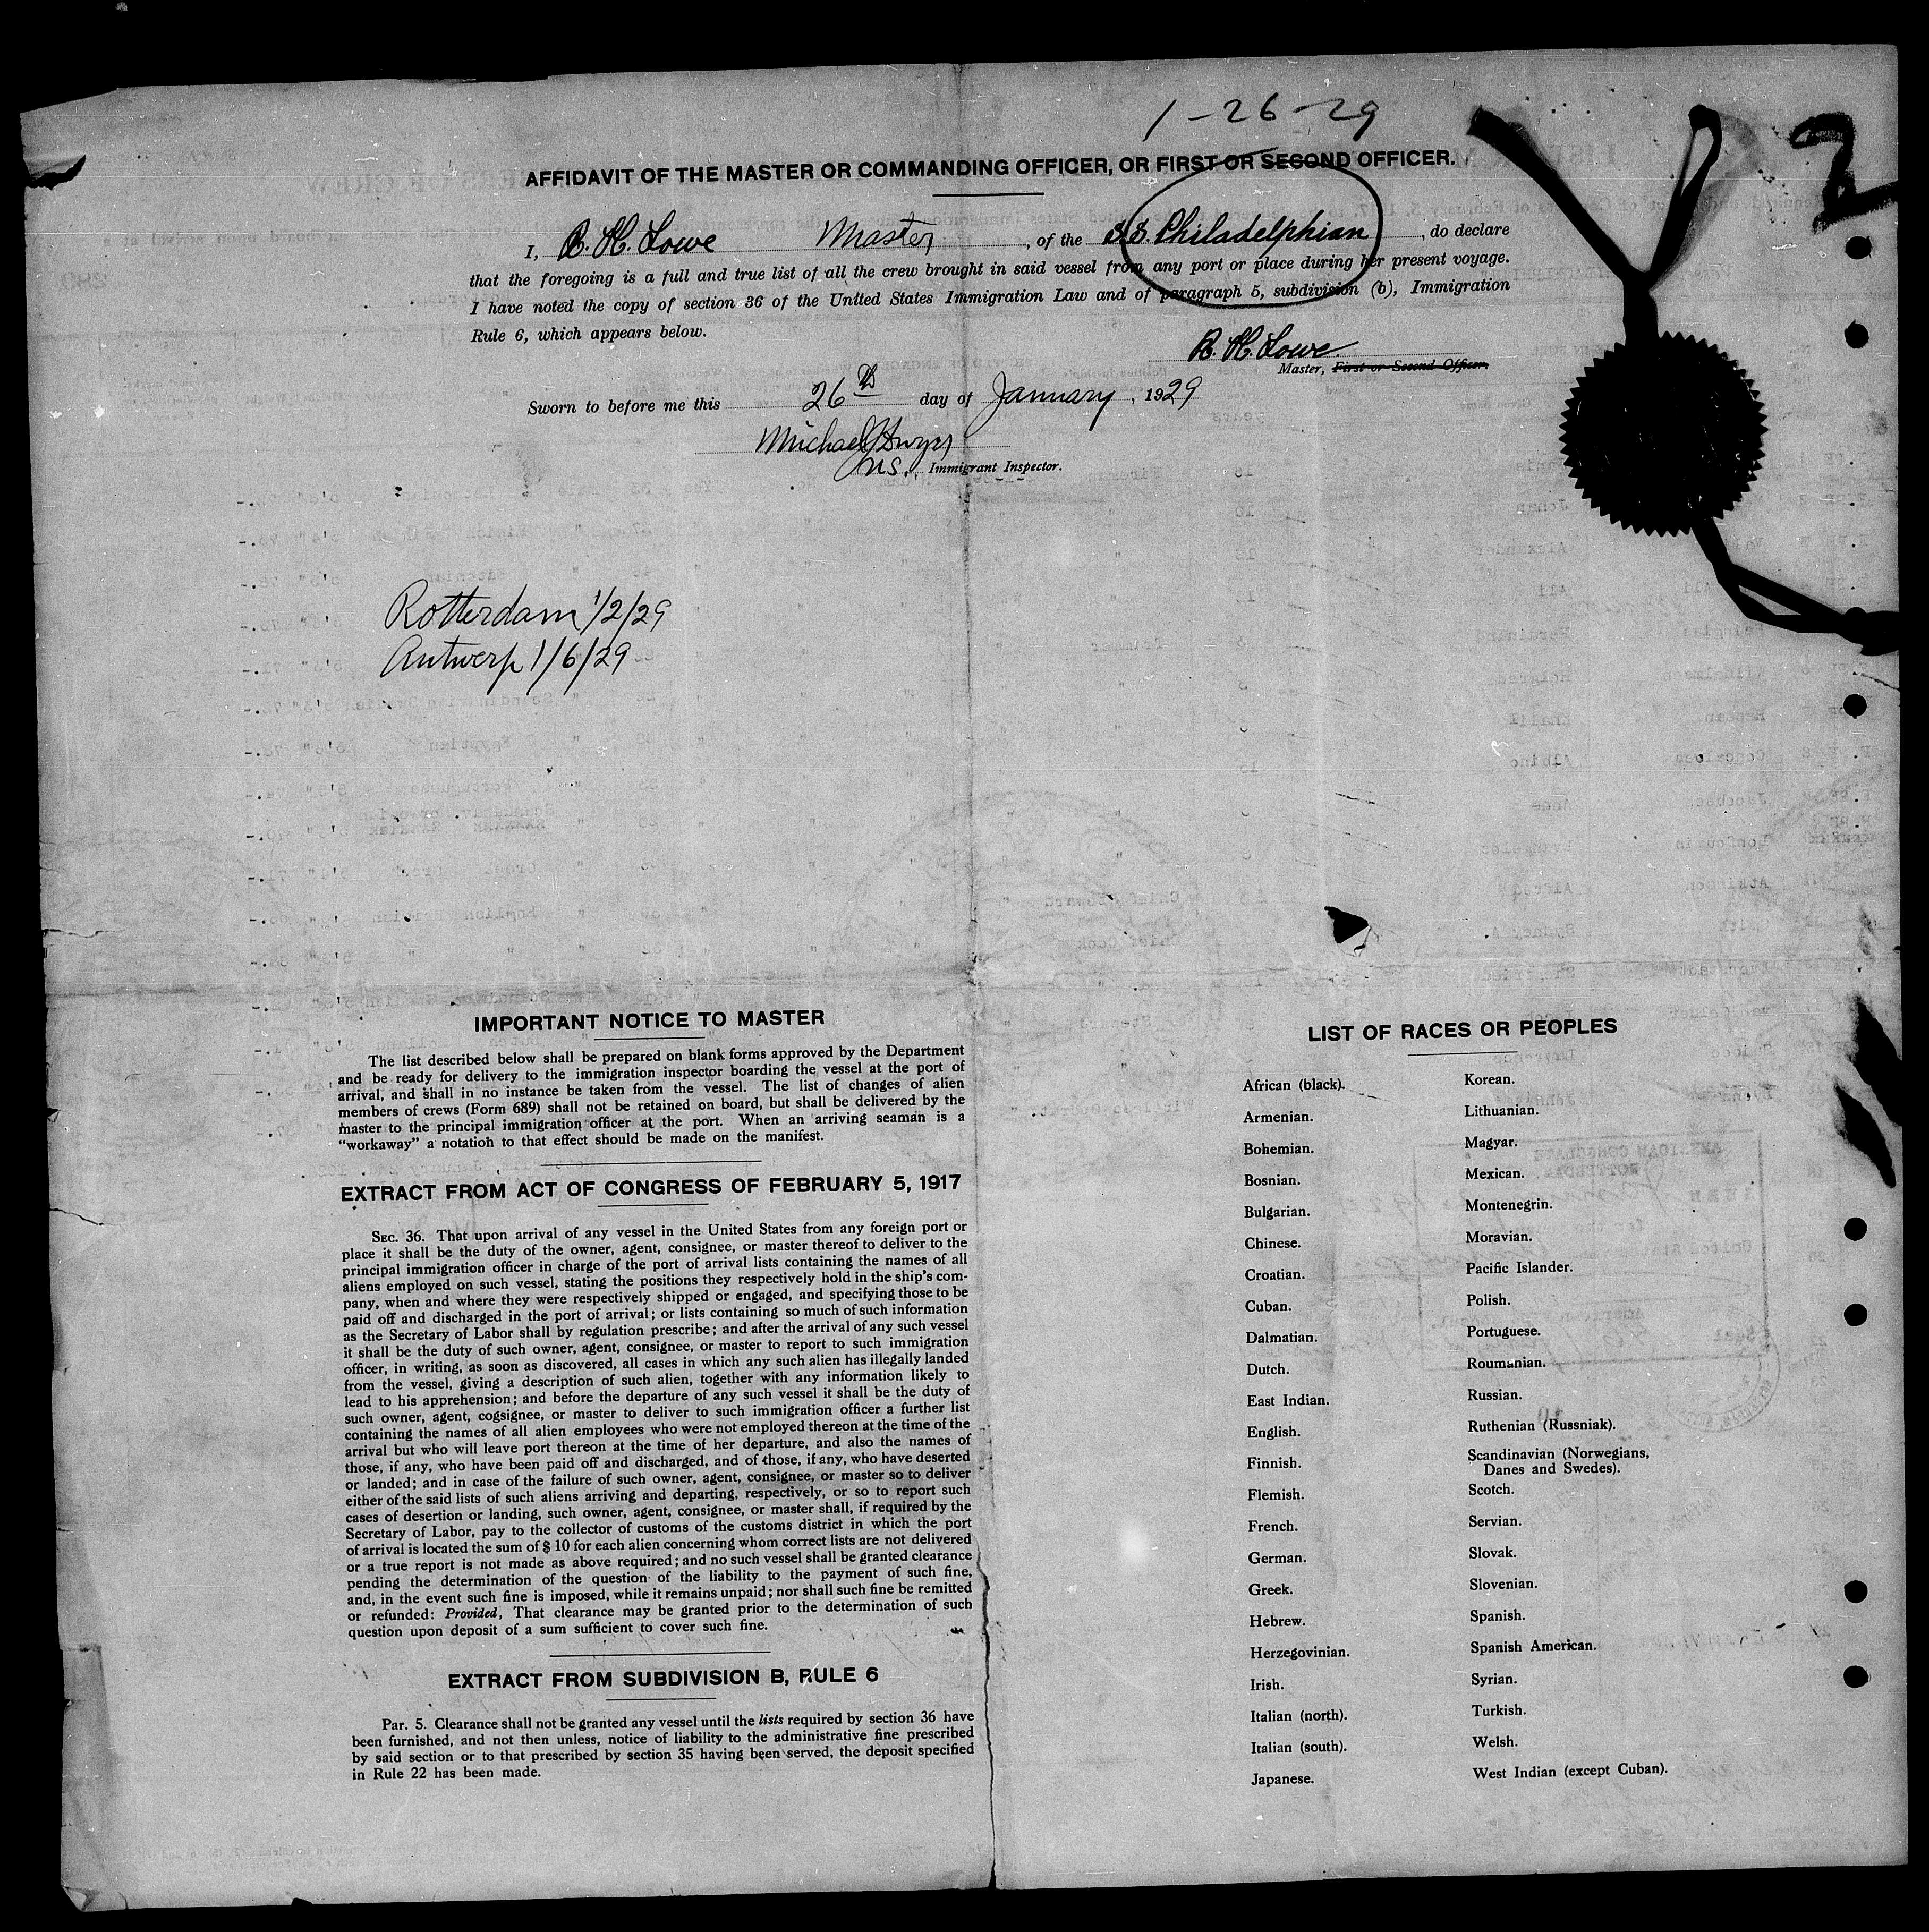 1-26-29
2
AFFIDAVIT OF THE MASTER OR COMMANDING OFFICER, OR FIRST OR SECOND OFFICER.
I, R. H. Lowe Master, of the S.S. Philadelphian, do declare
that the foregoing is a full and true list of all the crew brought in said vessel from any port or place during her present voyage.
I have noted the copy of section 36 of the United States Immigration Law and of paragraph 5, subdivision (b), Immigration
Rule 6, which appears below.
R. H. Lowe
Master, First or Second Officer.
Sworn to before me this 26th day of January, 1929
Michael Dwyer
Immigrant Inspector.
Rotterdam 1/2/29
Antwerp 1/6/29
IMPORTANT NOTICE TO MASTER
The list described below shall be prepared on blank forms approved by the Department
and be ready for delivery to the immigration inspector boarding the vessel at the port of
arrival, and shall in no instance be taken from the vessel. The list of changes of alien
members of crews (Form 689) shall not be retained on board, but shall be delivered by the
master to the principal immigration officer at the port. When an arriving seaman is a
"workaway" a notation to that effect should be made on the manifest.
EXTRACT FROM ACT OF CONGRESS OF FEBRUARY 5, 1917
SEC. 36. That upon arrival of any vessel in the United States from any foreign port or
place it shall be the duty of the owner, agent, consignee, or master thereof to deliver to the
principal immigration officer in charge of the port of arrival lists containing the names of all
aliens employed on such vessel, stating the positions they respectively hold in the ship's com-
pany, when and where they were respectively shipped or engaged, and specifying those to be
paid off and discharged in the port of arrival; or lists containing so much of such information
as the Secretary of Labor shall by regulation prescribe; and after the arrival of any such vessel
it shall be the duty of such owner, agent, consignee, or master to report to such immigration
officer, in writing, as soon as discovered, all cases in which any such alien has illegally landed
from the vessel, giving a description of such alien, together with any information likely to
lead to his apprehension; and before the departure of any such vessel it shall be the duty of
such owner, agent, cogsignee, or master to deliver to such immigration officer a further list
containing the names of all alien employees who were not employed thereon at the time of the
arrival but who will leave port thereon at the time of her departure, and also the names of
those, if any, who have been paid off and discharged, and of those, if any, who have deserted
or landed; and in case of the failure of such owner, agent, consignee, or master so to deliver
either of the said lists of such aliens arriving and departing, respectively, or so to report such
cases of desertion or landing, such owner, agent, consignee, or master shall, if required by the
Secretary of Labor, pay to the collector of customs of the customs district in which the port
of arrival is located the sum of $10 for each alien concerning whom correct lists are not delivered
or a true report is not made as above required; and no such vessel shall be granted clearance
pending the determination of the question of the liability to the payment of such fine,
and, in the event such fine is imposed, while it remains unpaid; nor shall such fine be remitted
or refunded: Provided, That clearance may be granted prior to the determination of such
question upon deposit of a sum sufficient to cover such fine.
EXTRACT FROM SUBDIVISION B, RULE 6
Par. 5. Clearance shall not be granted any vessel until the lists required by section 36 have
been furnished, and not then unless, notice of liability to the administrative fine prescribed
by said section or to that prescribed by section 35 having been served, the deposit specified
in Rule 22 has been made.
LIST OF RACES OR PEOPLES
African (black).
Armenian.
Bohemian.
Bosnian.
Bulgarian.
Chinese.
Croatian.
Cuban.
Dalmatian.
Dutch.
East Indian.
English.
Finnish.
Flemish.
French.
German.
Greek.
Hebrew.
Herzegovinian.
Irish.
Italian (north).
Italian (south).
Japanese.
Korean.
Lithuanian.
Magyar.
Mexican.
Montenegrin.
Moravian.
Pacific Islander.
Polish.
Portuguese.
Roumanian.
Russian.
Ruthenian (Russniak).
Scandinavian (Norwegians,
Danes and Swedes).
Scotch.
Servian.
Slovak.
Slovenian.
Spanish.
Spanish American.
Syrian.
Turkish.
Welsh.
West Indian (except Cuban).